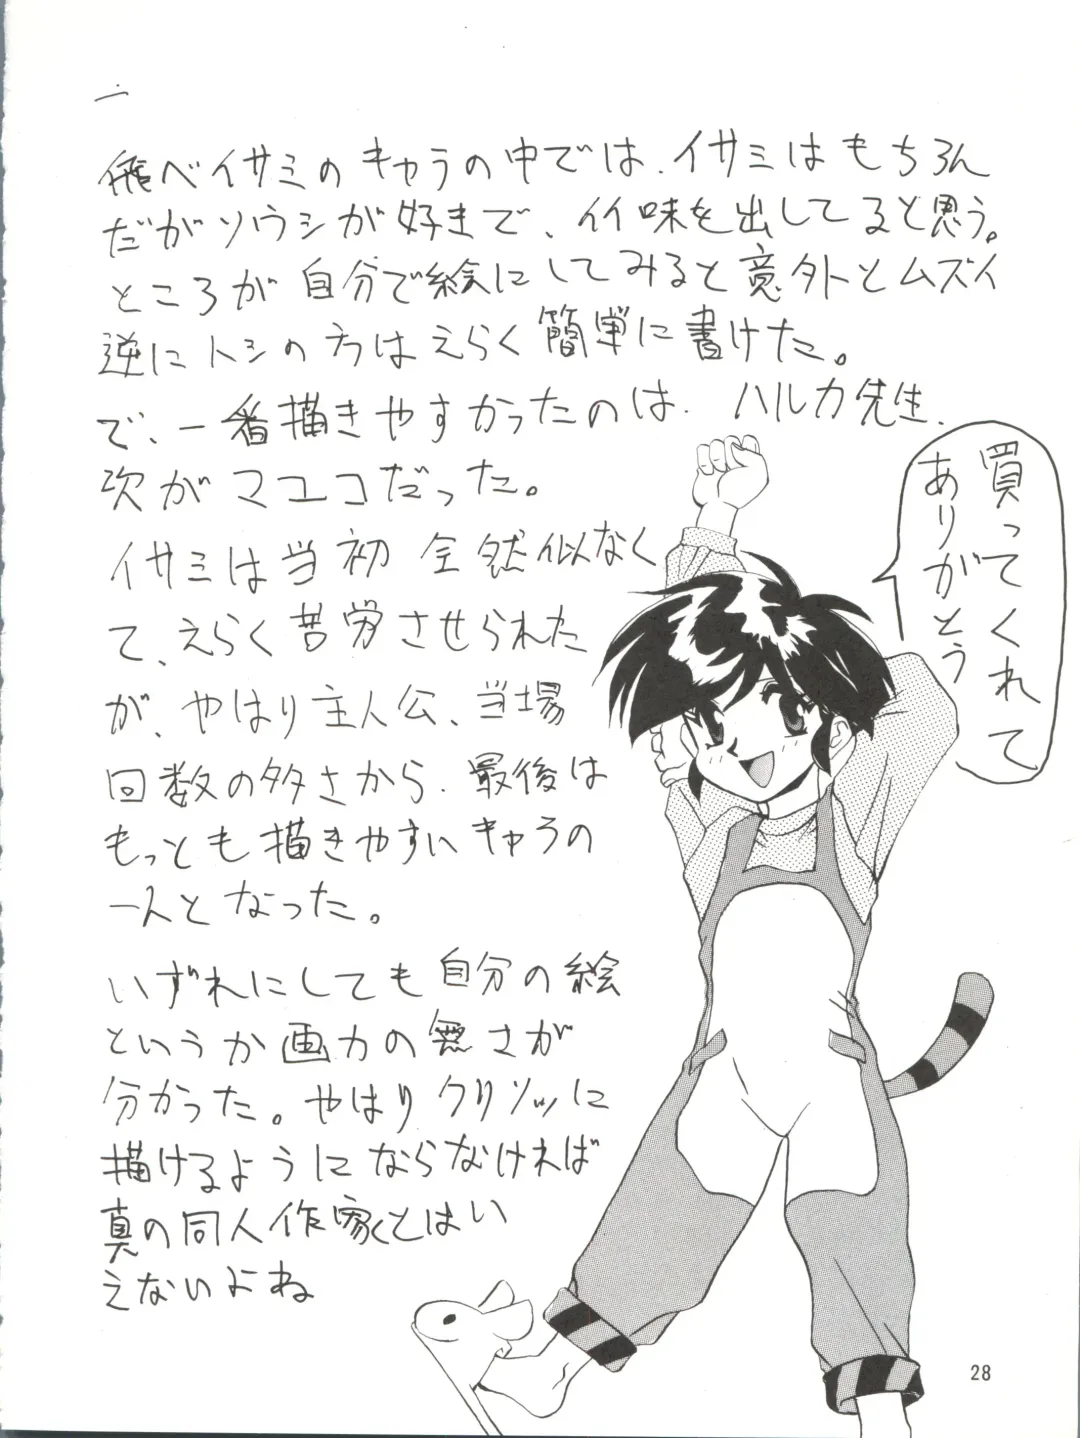 飛べイサミのキャラの中では、イサミはもちろん
だがソウシが好きで、イイ味を出してると思う。
ところが自分で絵にしてみると意外とムズイ
逆にトシの方はえらく簡単に書けた。
で、一番描きやすかったのは、ハルカ先生、
次がマユコだった。
イサミは当初全然似なく
て、えらく苦労させられた
が、やはり主人公、当場
回数の多さから、最後は
もっとも描きやすいキャラの
一人となった。
いずれにしても自分の絵
というか画力の無さが
分かった。やはりクリソツに
描けるようにならなければ
真の同人作家とはい
えないよね
買ってくれて
ありがとう
28